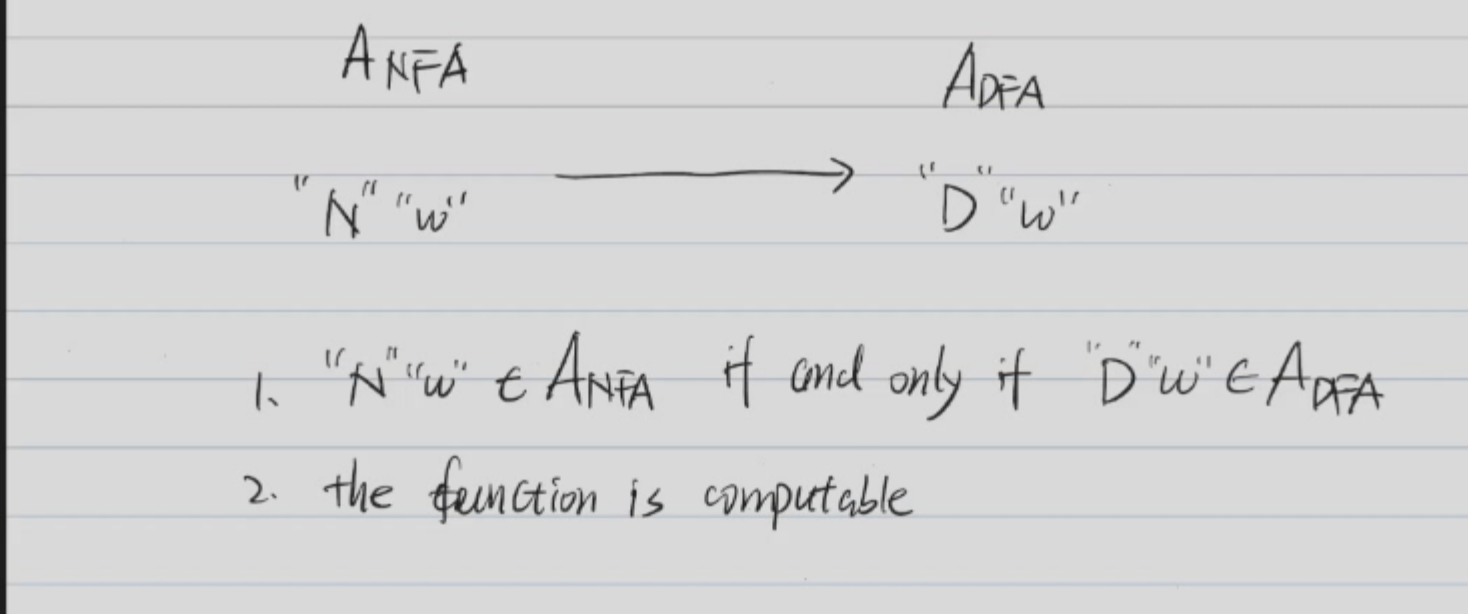 A NFA A DFA
"N" "w" → "D" "w"
1. "N" "w" ∈ A NFA if and only if "D" "w" ∈ A DFA
2. the function is computable